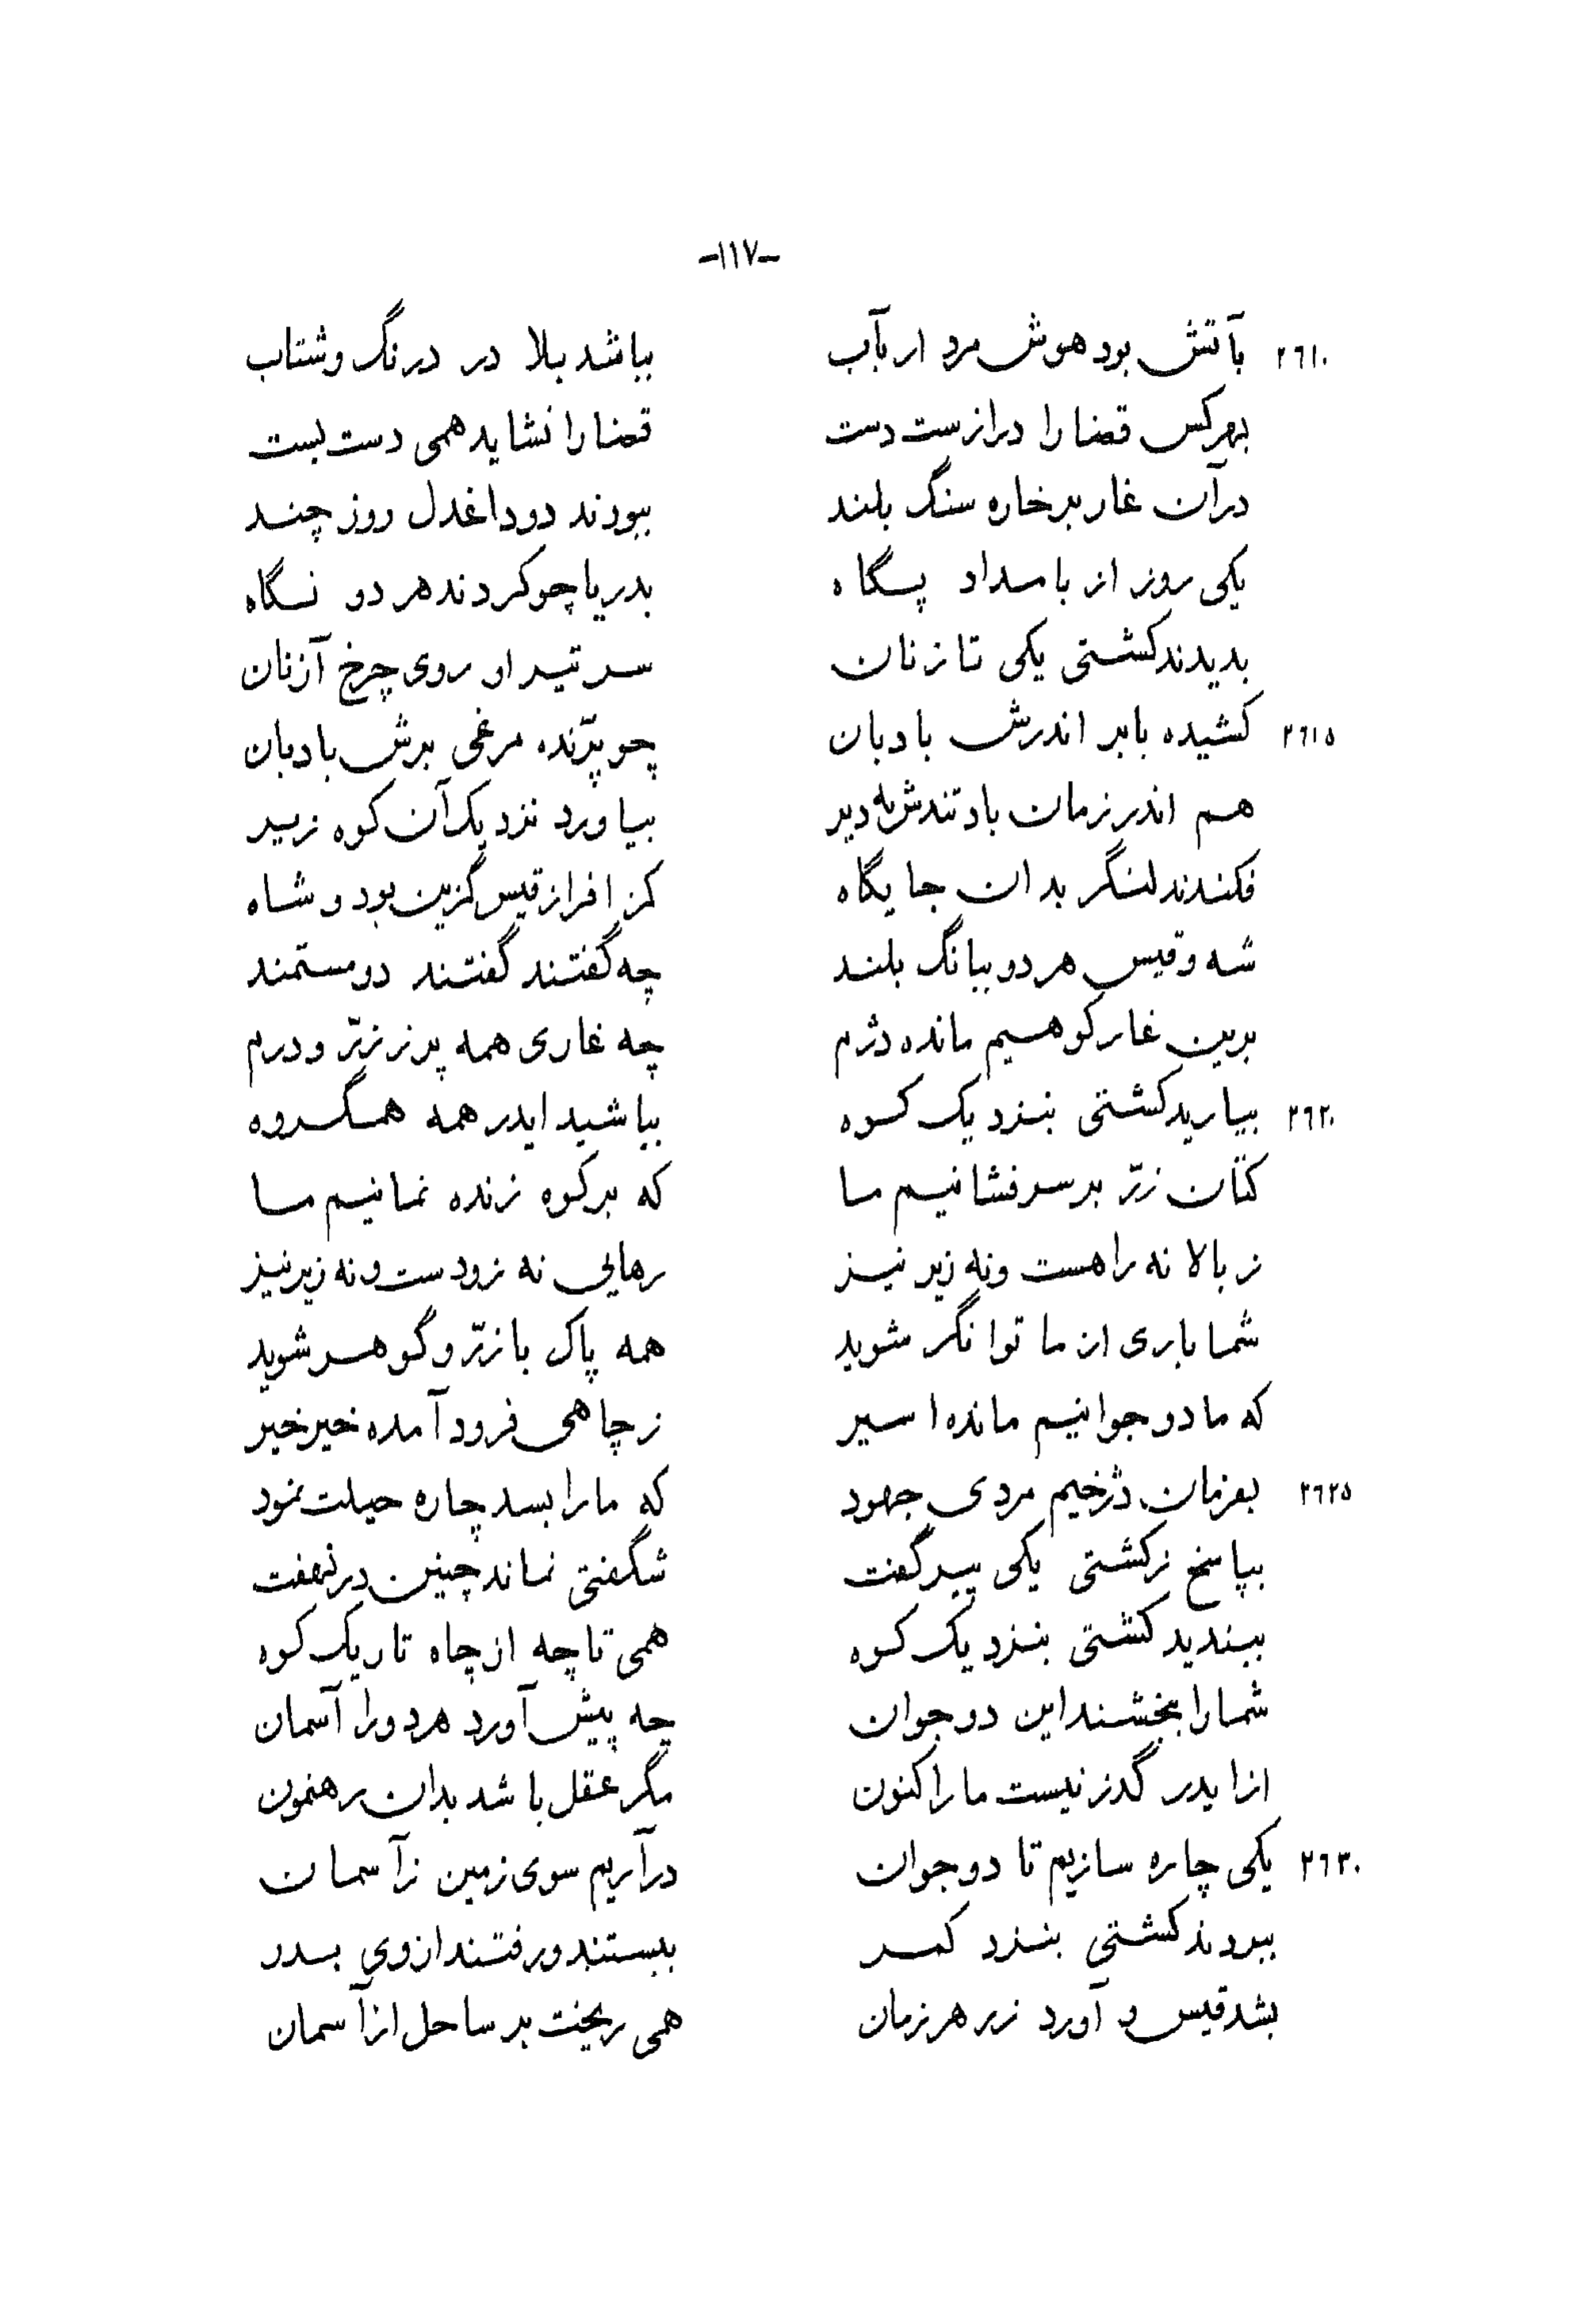 -١١٧-
٢٦١٠ بآتش بود هوش مرد ار بآب بباشد بلا در درنگ و شتاب
بهرکس قضا را درازست دست قضا را نشاید همی دست بست
درآن غار بر خاره سنگ بلند ببودند دو داغدل روز چند
یکی روز از بامداد پگاه بدریا چو کردند هر دو نگاه
بدیدند کشتی یکی تازنان سر تیر او روی چرخ آژنان
٢٦١٥ کشیده بابر اندرش بادبان چو پرّنده مرغی برش بادبان
هم اندر زمان باد تندش به دیر بیاورد نزدیک آن کوه زیر
فکندند لنگر بدان جایگاه کز افراز قیس گزین بود و شاه
شه و قیس هر دو ببانگ بلند چه گفتند گفتند دو مستمند
برین غار کوهیم مانده دژم چه غاری همه پر ز زرّ و درم
٢٦٢٠ بیارید کشتی بنزدیک کوه بباشید ایدر همه همگروه
کتان زرّ بر سر فشانیم ما که بر کوه زنده نمانیم ما
ز بالا نه راهست ونه زیر نیز رهایی نه زودست و نه زیر نیز
شما باری از ما توانگر شوید همه پاک با زرّ و گوهر شوید
که ما دو جوانیم مانده اسیر ز چاهی فرود آمده خیر خیر
٢٦٢٥ بفرمان دژخیم مردی جهود که ما را بسد چاره حیلت نمود
بپاسخ ز کشتی یکی پیر گفت شگفتی نماند چنین در نهفت
ببندید کشتی بنزدیک کوه همی تا چه از چاه تاریک کوه
شما را ببخشند این دو جوان چه پیش آورد هر دو را آسمان
از ایدر گذر نیست ما را کنون مگر عقل باشد بدان رهنمون
٢٦٣٠ یکی چاره سازیم تا دو جوان درآریم سوی زمین ز آسمان
ببردند کشتی بنزد کمر ببستند و رفتند از وی بدر
بشد قیس و آورد زر هر زمان همی ریخت بر ساحل از آسمان